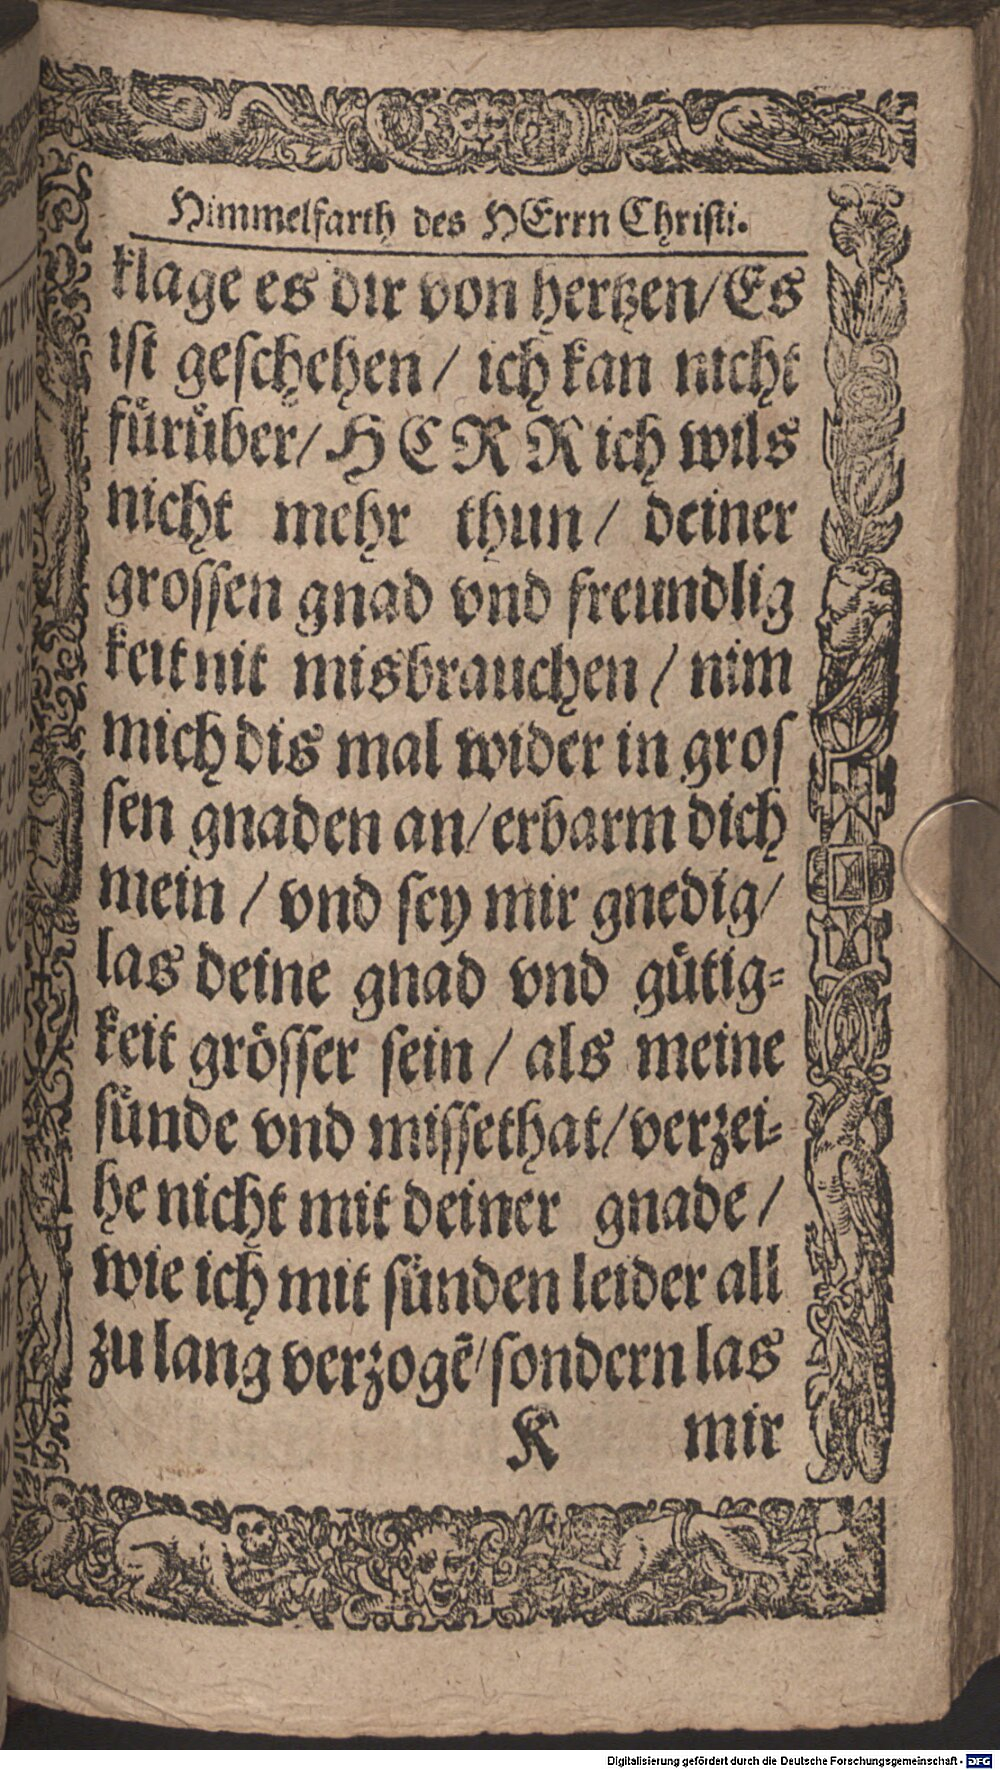 Himmelfarth des HErrn Christi.
klage es dir von hertzen/Es
ist geschehen / ich kan nicht
fuͤruͤber/ HERR ich wils
nicht mehr thun / deiner
grossen gnad vnd freundlig
keit nit misbrauchen / nim
mich dis mal wider in gros
sen gnaden an/erbarm dich
mein / vnd sey mir gnedig/
las deine gnad vnd guͤtig⸗
keit groͤsser sein / als meine
suͤnde vnd missethat/verzei⸗
he nicht mit deiner gnade /
wie ich mit suͤnden leider all
zu lang verzogẽ/sondern las
K mir
Digitalisierung gefördert durch die Deutsche Forschungsgemeinschaft - DFG